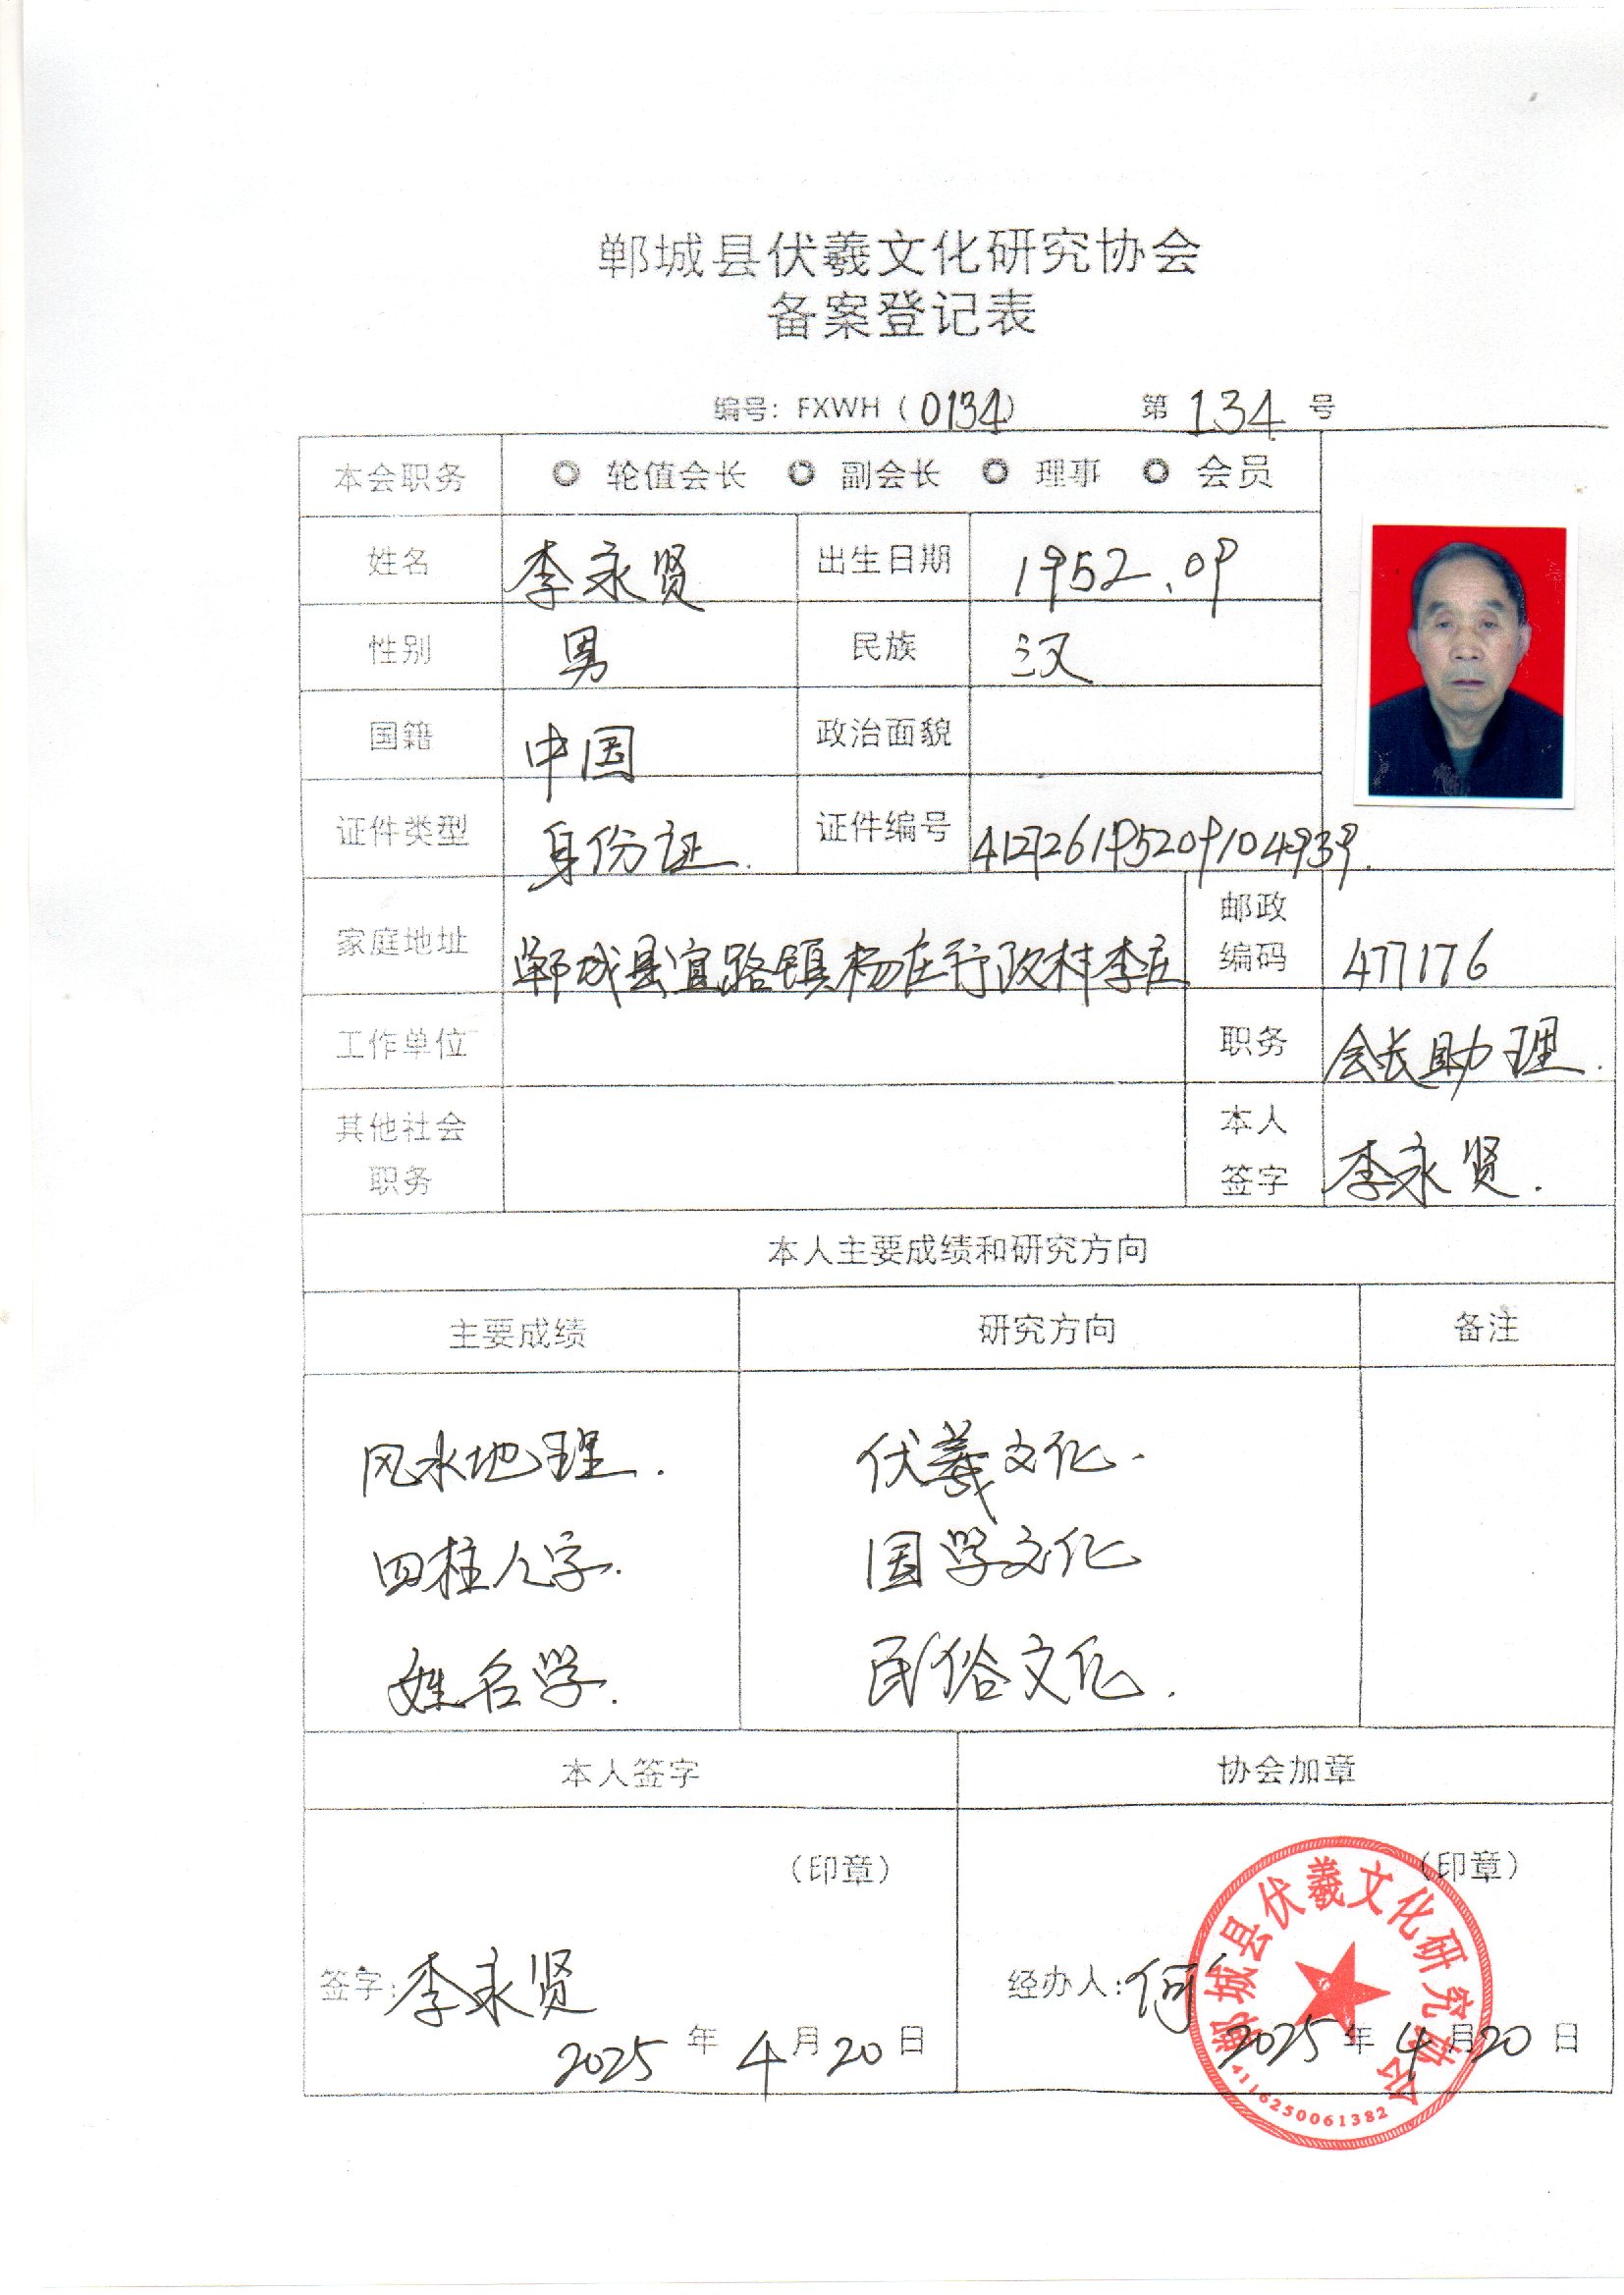 郸城县伏羲文化研究协会
备案登记表
编号：FXWH（0134） 第 134 号
本会职务 轮值会长 副会长 理事 会员
姓名 李永贤 出生日期 1952.09
性别 男 民族 汉
国籍 中国 政治面貌
证件类型 身份证. 证件编号 412726195209104939.
家庭地址 郸城县宜路镇杨庄行政村李庄 邮政编码 477176
工作单位 职务 会长助理.
其他社会职务 本人签字 李永贤.
本人主要成绩和研究方向
主要成绩 研究方向 备注
风水地理. 伏羲文化.
四柱人字. 国学文化
姓名学. 民俗文化.
本人签字 协会加章
（印章） （印章）
签字：李永贤 经办人：何
2025 年 4 月 20 日 2025 年 4 月 20 日
郸城县伏羲文化研究协会
4116250061382